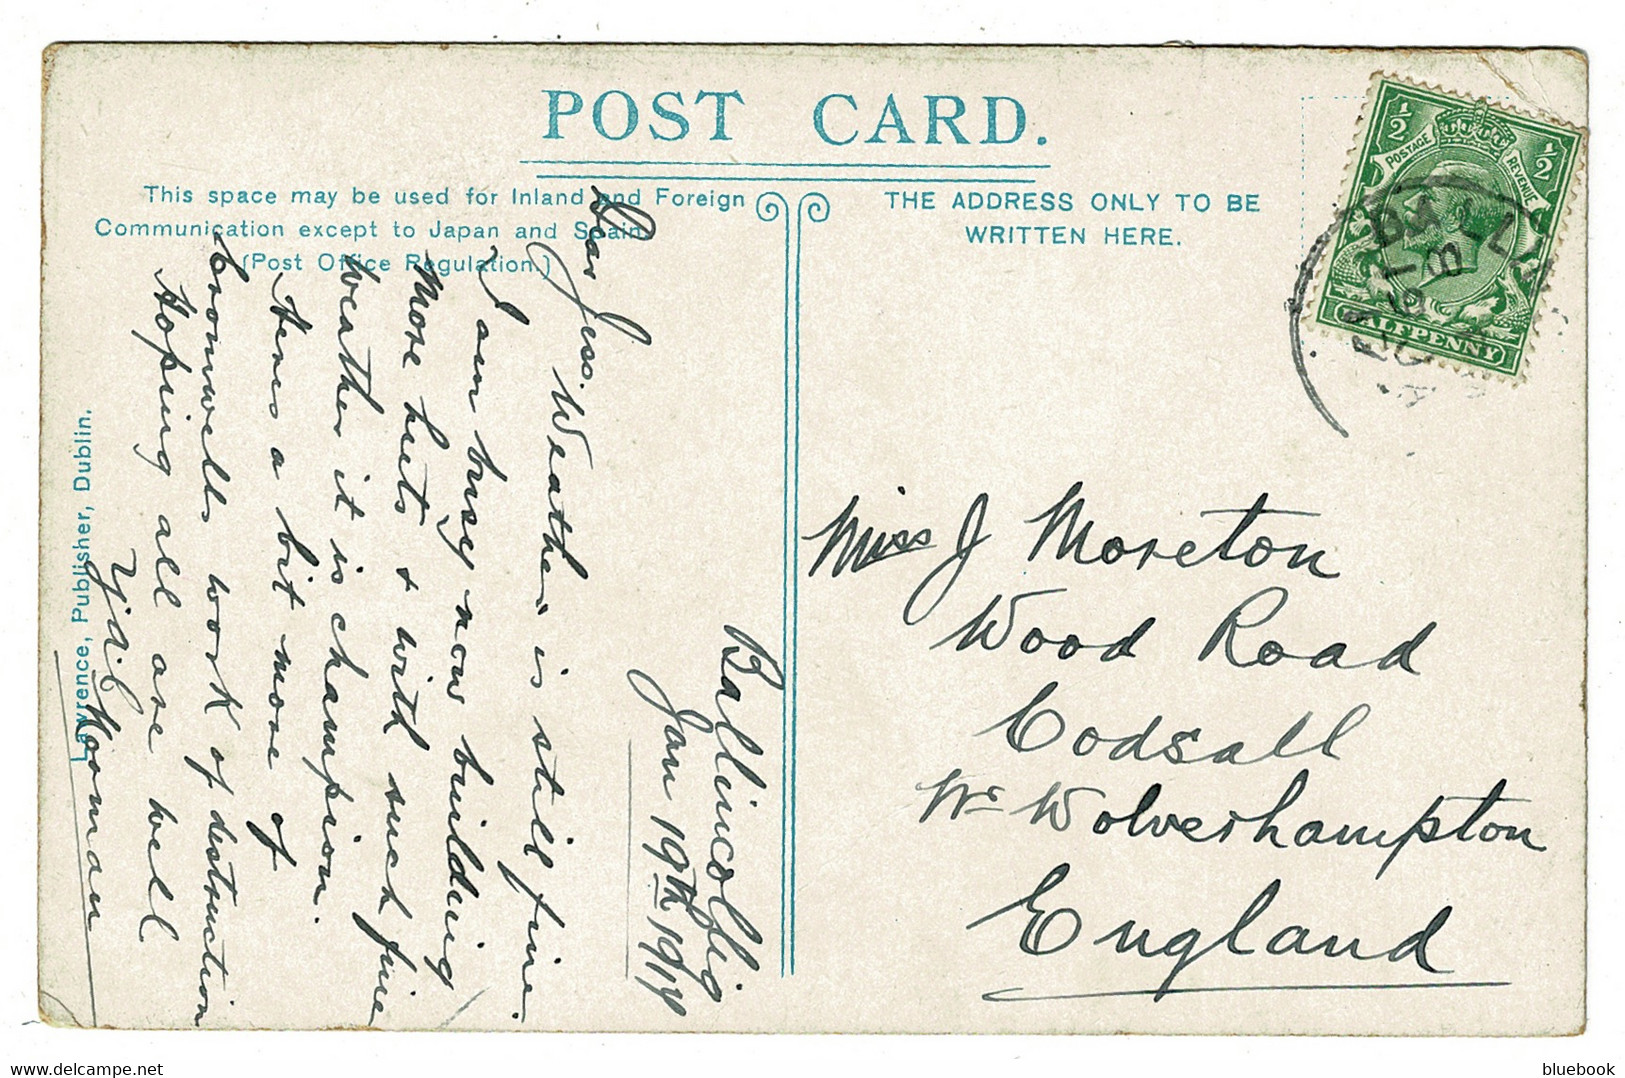 POST CARD.
This space may be used for Inland and Foreign
Communication except to Japan and Spain.
(Post Office Regulation.)
THE ADDRESS ONLY TO BE
WRITTEN HERE.
Lawrence, Publisher, Dublin.
½ ½
POSTAGE REVENUE
HALFPENNY
Ballincollig
Jan 19th 1914
Dear Jess. Weather is still fine.
I am busy now building
More huts + with such fine
weather it is champion.
Heres a bit more of
Cromwells work of destruction
Hoping all are well
Miss J Moreton
Wood Road
Codsall
Nr Wolverhampton
England
bluebook